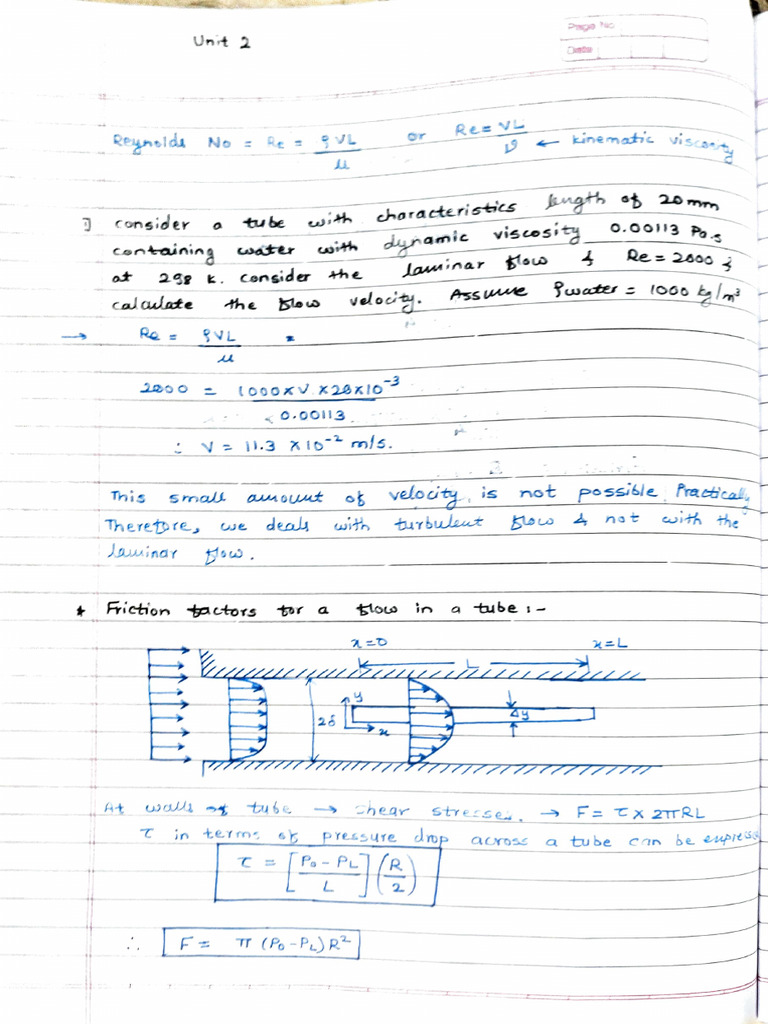 Page No
Date
Unit 2
Reynolds No = Re = ρVL/μ or Re = VL/ν ← kinematic viscosity
1) consider a tube with characteristics length of 20mm
containing water with dynamic viscosity 0.00113 Pa.s
at 298 K. consider the laminar flow & Re = 2000 &
calculate the flow velocity. Assume ρwater = 1000 kg/m³
→ Re = ρVL/μ
2000 = 1000×V×20×10⁻³/0.00113
∴ V = 11.3 × 10⁻² m/s.
This small amount of velocity is not possible Practically
Therefore, we deals with turbulent flow & not with the
laminar flow.
* Friction factors for a flow in a tube :-
x=0 x=L
L
y
2δ
x
Δy
At walls of tube → shear stresses. → F = τ × 2πRL
τ in terms of pressure drop across a tube can be
τ = [P₀ - P_L / L] (R/2)
∴ F = π (P₀ - P_L) R²